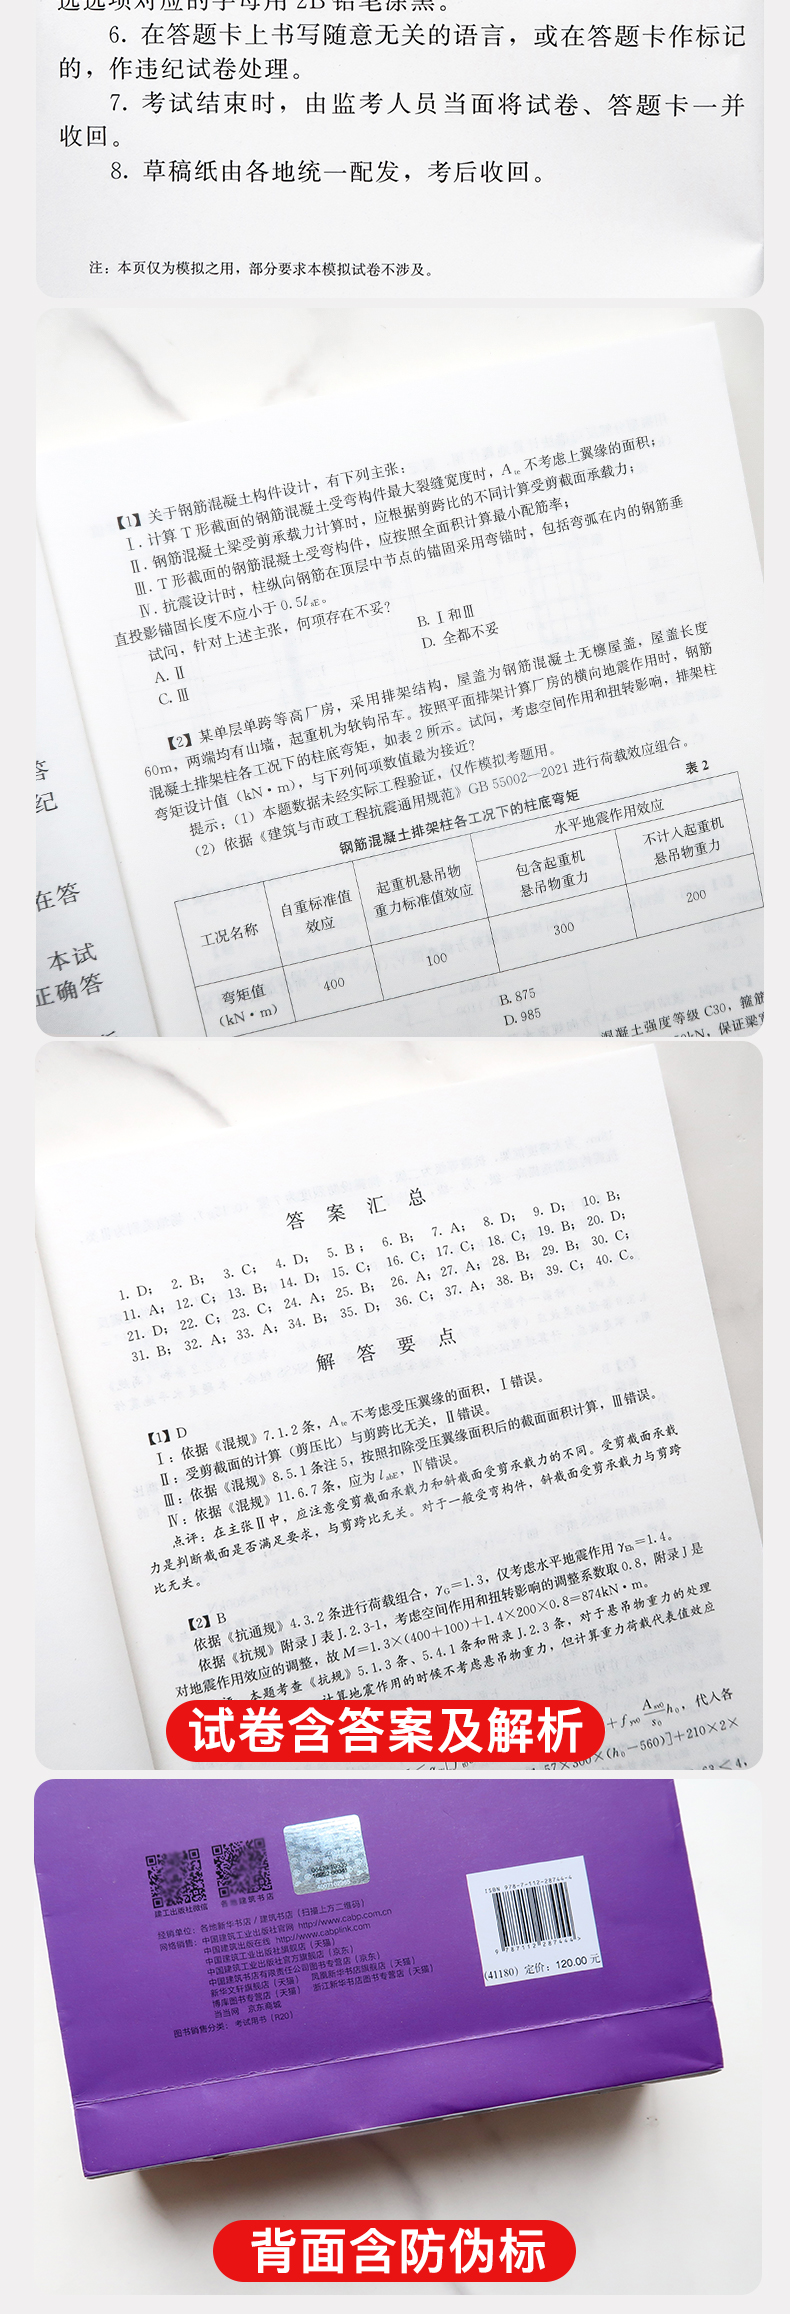 选选项对应的字母用 2B 铅笔涂黑。
6. 在答题卡上书写随意无关的语言，或在答题卡作标记
的，作违纪试卷处理。
7. 考试结束时，由监考人员当面将试卷、答题卡一并
收回。
8. 草稿纸由各地统一配发，考后收回。
注：本页仅为模拟之用，部分要求本模拟试卷不涉及。
答
纪
在答
本试
正确答
【1】关于钢筋混凝土构件设计，有下列主张：
Ⅰ. 计算 T 形截面的钢筋混凝土受弯构件最大裂缝宽度时，Ate 不考虑上翼缘的面积；
Ⅱ. 钢筋混凝土梁受剪承载力计算时，应根据剪跨比的不同计算受剪截面承载力；
Ⅲ. T 形截面的钢筋混凝土受弯构件，应按照全面积计算最小配筋率；
Ⅳ. 抗震设计时，柱纵向钢筋在顶层中节点的锚固采用弯锚时，包括弯弧在内的钢筋垂
直投影锚固长度不应小于 0.5laE。
试问，针对上述主张，何项存在不妥？
A. Ⅱ
B. Ⅰ和Ⅲ
C. Ⅲ
D. 全都不妥
【2】某单层单跨等高厂房，采用排架结构，屋盖为钢筋混凝土无檩屋盖，屋盖长度
60m，两端均有山墙，起重机为软钩吊车。按照平面排架计算厂房的横向地震作用时，钢筋
混凝土排架柱各工况下的柱底弯矩，如表 2 所示。试问，考虑空间作用和扭转影响，排架柱
弯矩设计值（kN·m），与下列何项数值最为接近？
提示：（1）本题数据未经实际工程验证，仅作模拟考题用。
（2）依据《建筑与市政工程抗震通用规范》GB 55002—2021 进行荷载效应组合。
钢筋混凝土排架柱各工况下的柱底弯矩
表 2
工况名称
自重标准值
效应
起重机悬吊物
重力标准值效应
水平地震作用效应
包含起重机
悬吊物重力
不计入起重机
悬吊物重力
弯矩值
(kN·m)
400
100
300
200
B. 875
D. 985
混凝土强度等级 C30，箍筋
kN，保证梁
答 案 汇 总
1. D； 2. B； 3. C； 4. D； 5. B； 6. B； 7. A； 8. D； 9. D； 10. B；
11. A；12. C；13. B；14. D；15. C；16. C；17. C；18. C；19. B；20. D；
21. D；22. C；23. C；24. A；25. B；26. A；27. A；28. B；29. B；30. C；
31. B；32. A；33. A；34. B；35. D；36. C；37. A；38. B；39. C；40. C。
解 答 要 点
【1】D
Ⅰ：依据《混规》7.1.2 条，Ate 不考虑受压翼缘的面积，Ⅰ错误。
Ⅱ：受剪截面的计算（剪压比）与剪跨比无关，Ⅱ错误。
Ⅲ：依据《混规》8.5.1 条注 5，按照扣除受压翼缘面积后的截面面积计算，Ⅲ错误。
Ⅳ：依据《混规》11.6.7 条，应为 labE，Ⅳ错误。
点评：在主张Ⅱ中，应注意受剪截面承载力和斜截面受剪承载力的不同。受剪截面承载
力是判断截面是否满足要求，与剪跨比无关。对于一般受弯构件，斜截面受剪承载力与剪跨
比无关。
【2】B
依据《抗通规》4.3.2 条进行荷载组合，γG=1.3，仅考虑水平地震作用 γEh=1.4。
依据《抗规》附录 J 表 J.2.3-1，考虑空间作用和扭转影响的调整系数取 0.8，附录 J 是
对地震作用效应的调整，故 M=1.3×(400+100)+1.4×200×0.8=874kN·m。
本题考查《抗规》5.1.3 条、5.4.1 条和附录 J.2.3 条，对于悬吊物重力的处理
计算地震作用的时候不考虑悬吊物重力，但计算重力荷载代表值效应
，代入各
57×300×(h0−560)]+210×2×
试卷含答案及解析
建工出版社微信
各地建筑书店
经销单位：各地新华书店 / 建筑书店（扫描上方二维码）
网络销售：中国建筑工业出版社官网 http://www.cabp.com.cn
中国建筑出版在线 http://www.cabplink.com
中国建筑工业出版社旗舰店（天猫）
中国建筑工业出版社官方旗舰店（京东）
中国建筑书店有限责任公司图书专营店（京东）
新华文轩旗舰店（天猫） 凤凰新华书店旗舰店（天猫）
博库图书专营店（天猫） 浙江新华书店图书专营店（天猫）
当当网 京东商城
图书销售分类：考试用书（R20）
ISBN 978-7-112-28744-4
9 787112 287444
(41180) 定价：120.00 元
背面含防伪标